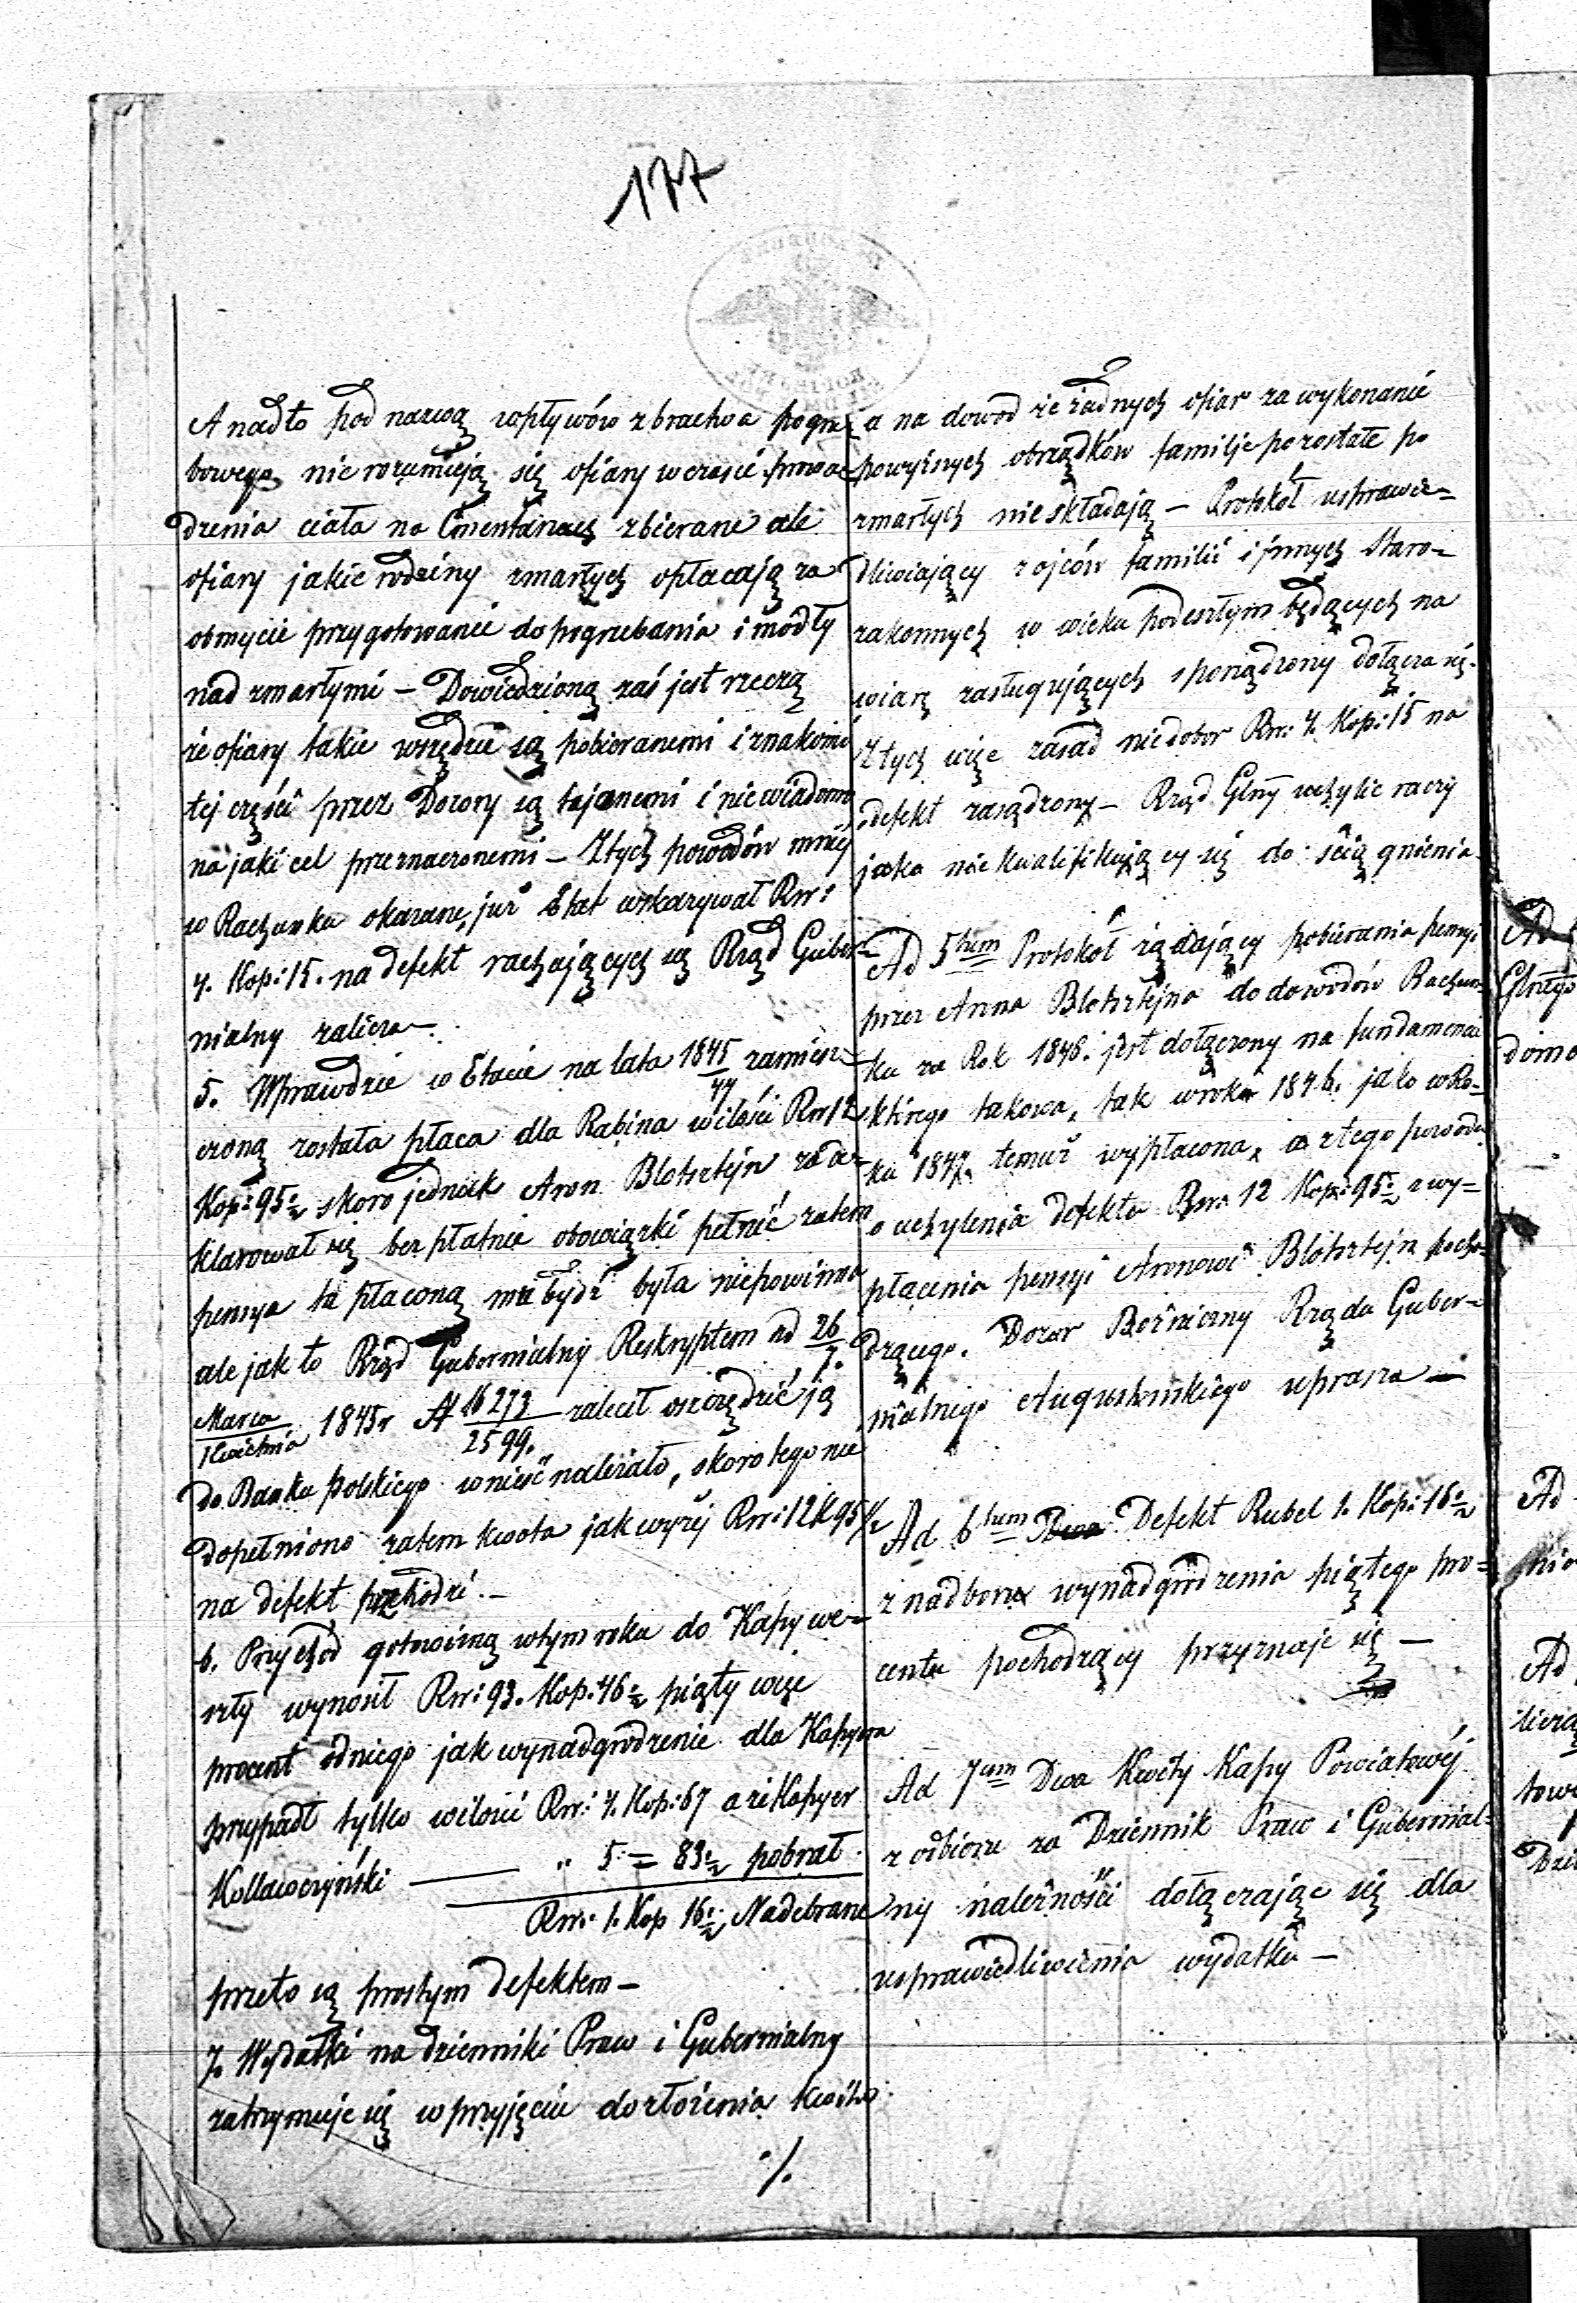 177
A nadto pod nazwą wpływów z bractwa pogrze
bowego nie rozumieją się ofiary w czasie prowa
dzenia ciała na Cmentarzach zbierane ale
ofiary jakie rodziny zmarłych opłacają za
obmycie przygotowanie do pogrzebania i modły
nad zmarłymi – Dowiedzioną zaś jest rzeczą
że ofiary takie wszędzie są pobieranemi i znakomi
tej części przez Dozory są tajonemi i niewiadomo
na jaki cel przeznaczonemi – Z tych powodów mniej
w Rachunku okazane, jur Etat wskazywał Rsr:
7. Kop: 15. na defekt rachujących się Rząd Guber=
nialny zalicza –.
5. Wprawdzie w Etacie na lata 1845/47 zamiesz=
czoną została płaca dla Rabina w ilości Rsr 12
Kop: 95½ skoro jednak Aron Blotsztejn zade=
klarował się bezpłatnie obowiązki pełnić zatem
pensya ta płaconą mu bydź była niepowinna
ale jak to Rząd Gubernialny Reskryptem z d 26/7.
Marca/Kwietnia 1845r N 16273/2599. zalecił oszczędzić ją
do Banku Polskiego wnieść należało, skoro tego nie
dopełniono zatem kwota jak wyżej Rsr: 12 K 95½
na defekt przechodzi. –
6. Przychód gotowizną w tym roku do Kassy we=
szły wynosił Rsr: 93. Kop. 46½ piąty więc
procent od niego jak wynadgrodzenie dla Kassyera
przypadł tylko w ilości Rsr: 4. Kop: 67 a że Kassyer
Kollawczyński — „ 5 = 83½ pobrał
Rsr: 1. Kop 16½ Nadebrane
przeto są prostym defektem –
7. Wydatki na dzienniki Praw i Gubernialny
zatrzymuje się w przyjęciu do złożenia kwitów
./.
a na dowód że żadnych ofiar za wykonanie
powyższych obrządków familje pozostałe po
zmarłych nie składają – Protokół usprawie=
dliwiający z ojców familii i innych Staro=
zakonnych w wieku podeszłym będących na
wiarę zasługujących sporządzony dołącza się.
Z tych więc zasad niedobor Rsr: 7. Kop: 15 na
defekt zasądzony – Rząd Glny uchylić raczy
jako nie kwalifikujący się do ściągnienia.
Ad 5tum Protokół żądający pobierania pensyi
przez Arona Blotsztejna do dowodów Rachun=
ku za Rok 1848. jest dołączony na fundamencie
którego takowa, tak w roku 1846. jako w Ro=
ku 1847. temuż wypłacona, a z tego powodu
o uchylenia defektu Rsr: 12 Kop: 95½ z wy=
płacenia pensyi Aronowi Blotsztejn pocho=
dzącego. Dozor Bożniczny Rządu Guber=
nialnego Augustowskiego uprasza –
Ad 6tum Defekt Rubel 1. Kop: 16½
z nadboru wynadgrodzenia piątego pro=
centu pochodzący przyznaje się –
Ad 7um Dwa Kwity Kassy Powiatowej
z odbioru za Dziennik Praw i Gubernial=
ny należności dołączając się dla
usprawiedliwienia wydatku –
Ad
Glnego
Ad
Ad